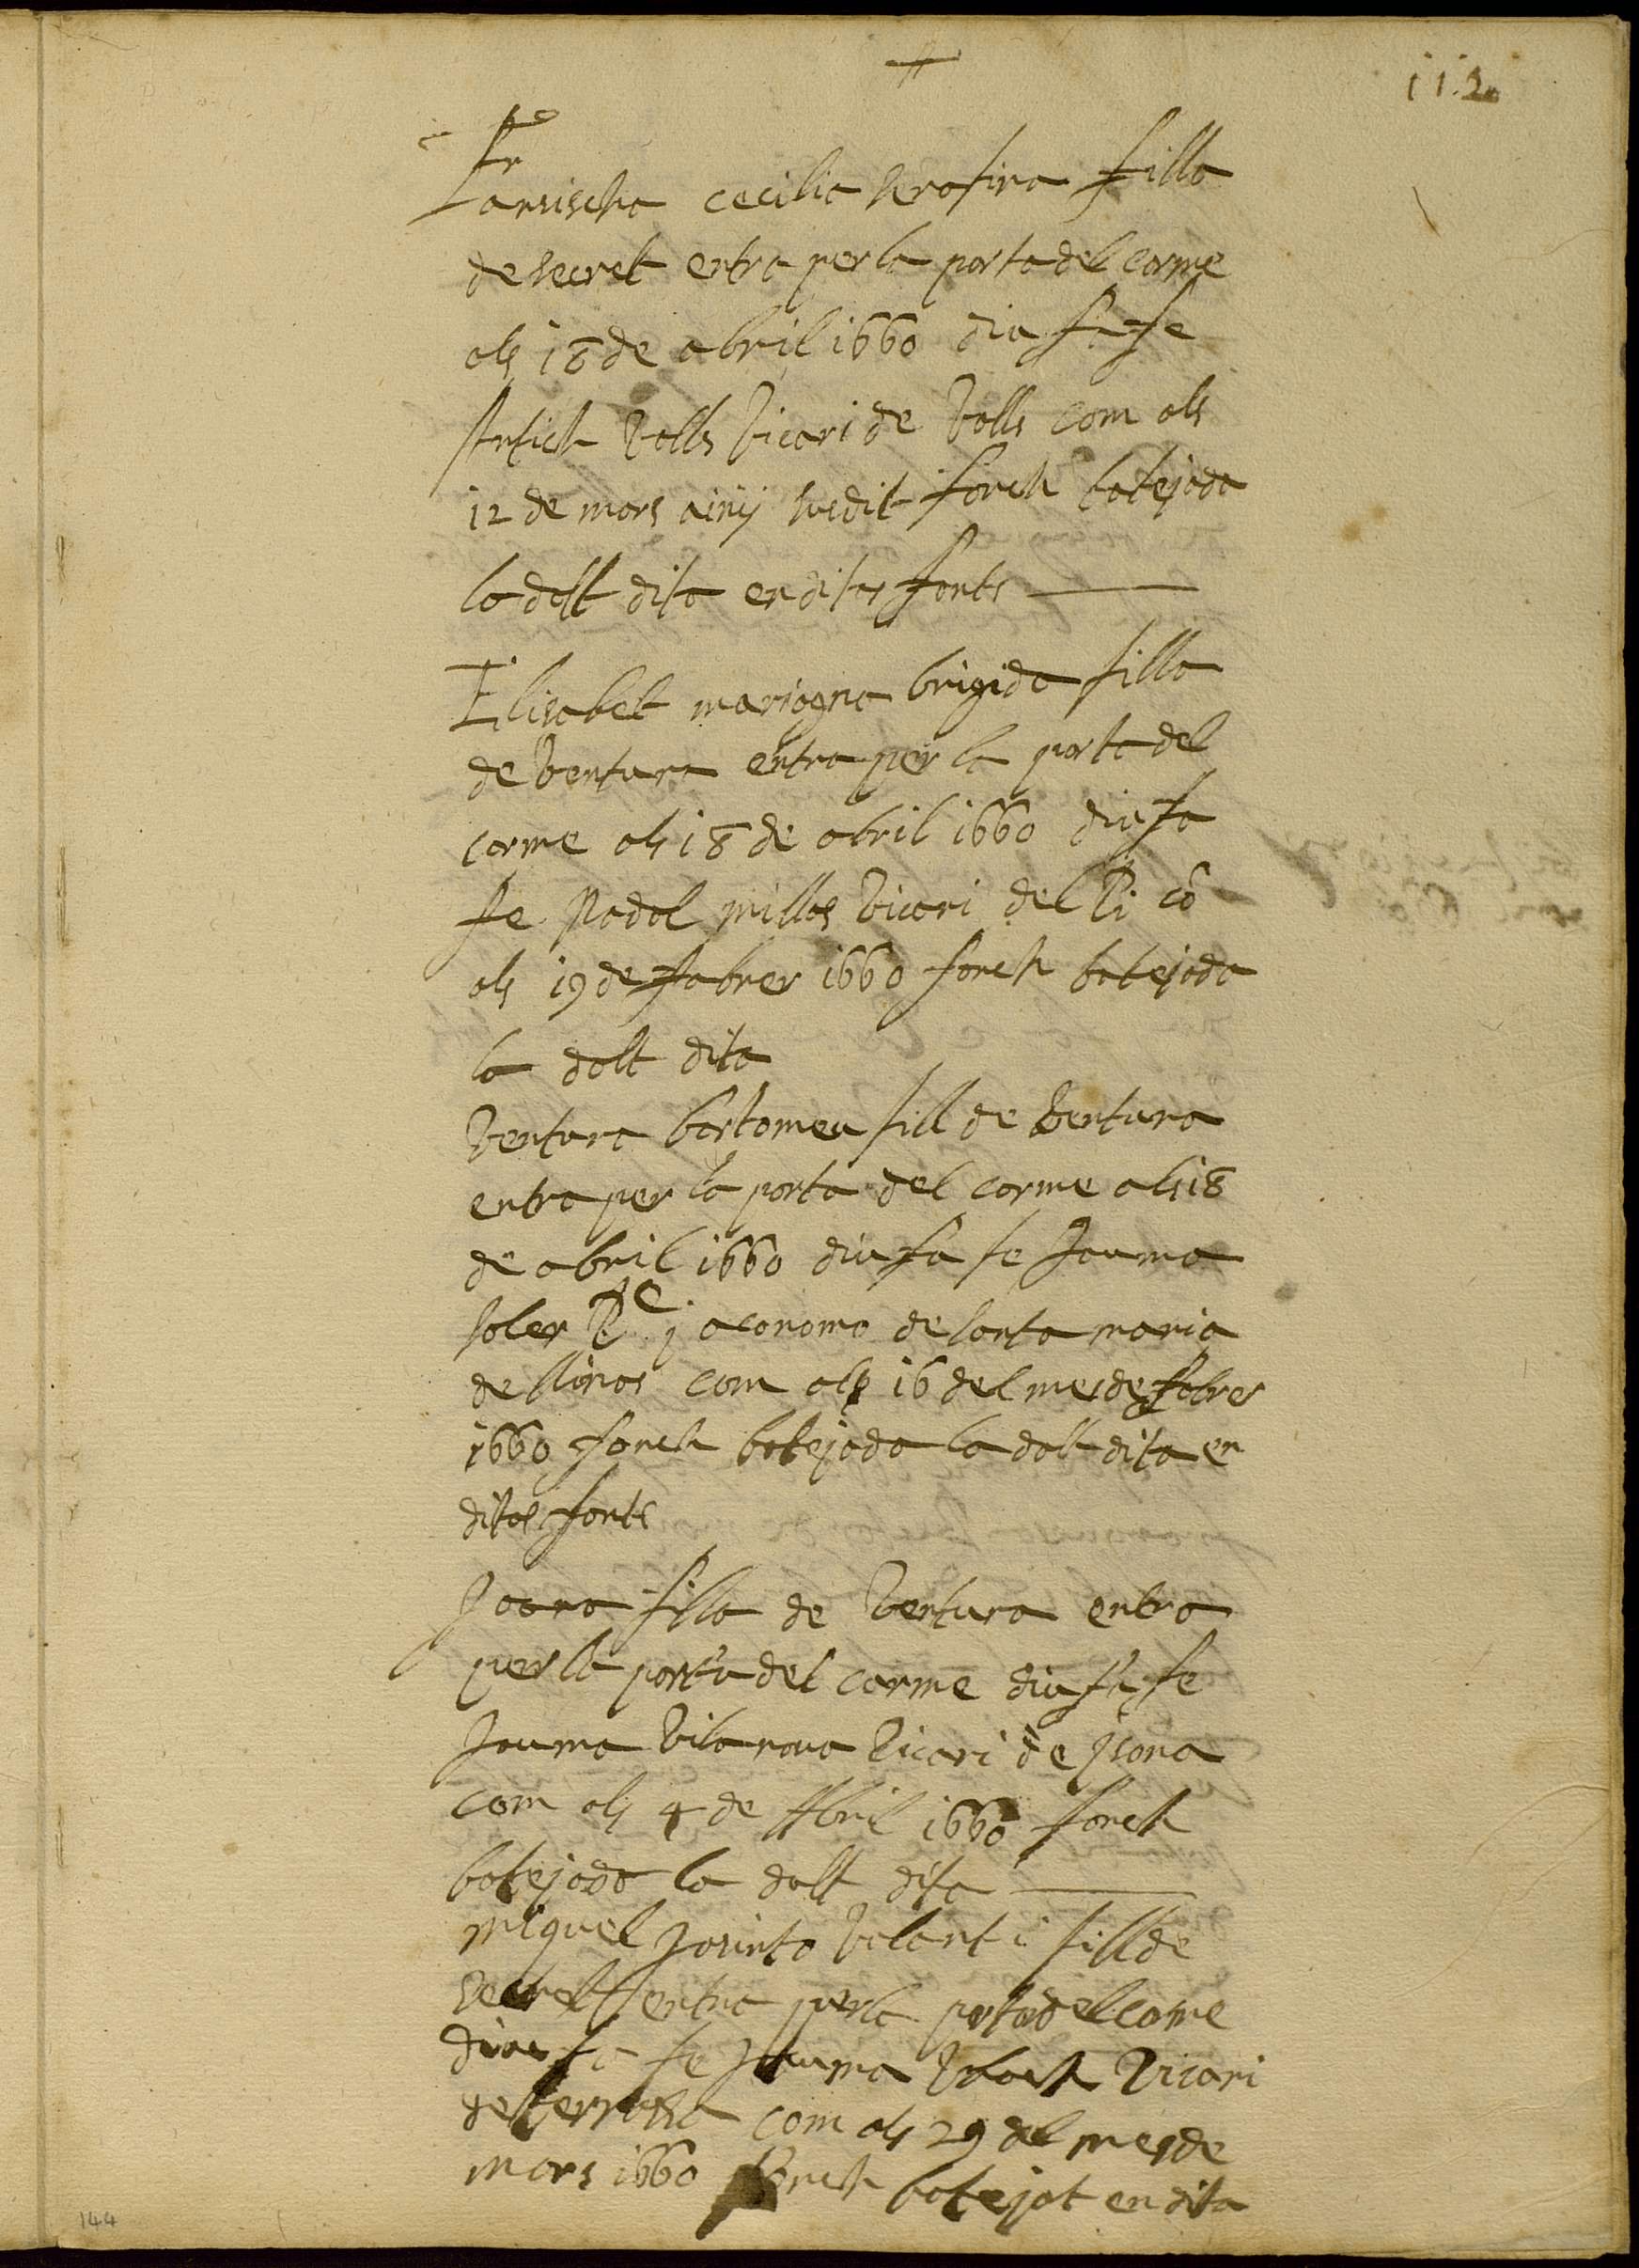 112
Fransischa cecilia serafina filla
de secret entra per la porta del carme
als 18 de abril 1660 diu fa fe
Valls Vicari de Valls com als
12 de mars ainÿ susdit fonch batejada
la dalt dita en ditas fonts
Elisabet mariagna brigida filla
de Ventura entra per la porta del
carme als 18 de abril 1660 diu fa
fe Nadal millas Vicari del Pi cō
als 19 de fabrer 1660 fonch batejada
la dalt dita
Ventura bartomeu fill de Ventura
entra per la porta del carme als 18
de abril 1660 diu fa fe Jauma
soler Pre. j aconomo de santa maria
de llinas com als 16 del mes de febrer
1660 fonch batejada la dalt dita en
ditas fonts
Joana filla de Ventura entra
per la porta del carme diu fa fe
Jauma Vilanova Vicari de Jsona
com als 4 de Abril 1660 fonch
batejada la dalt dita
miquel Jasinto Valanti fill de
secret entra per la porta del carme
diu fa fe Jauma Vicari
de terrassa com als 29 del mes de
mars 1660 fonch batejat en dita
144